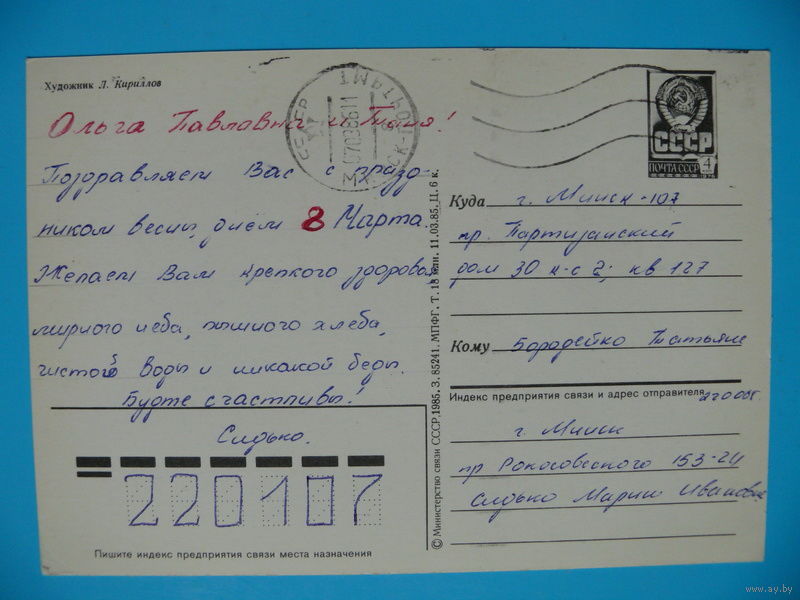 Художник Л. Кириллов
Ольга Павловна и Таня!
Поздравляем Вас с празд-
ником весны, днем 8 Марта.
Желаем Вам крепкого здоровья
мирного неба, пышного хлеба,
чистой воды и никакой беды.
Будте счастливы!
Слуько.
220107
Пишите индекс предприятия связи места назначения
© Министерство связи СССР, 1985, З. 85241. МПФГ. Т. 18 млн. 11.03.85. Ц. 6 к.
СССР
ПОЧТА СССР
4
Куда г. Минск-107
пр. Партизанский
дом 30 к-с 2; кв 127
Кому Бородейко Татьяне
Индекс предприятия связи и адрес отправителя
г. Минск
пр Рокосовского 153-24
Слуько Марии Ивановне
ПОЧТАМТ
МИНСК
070386 11
www.ay.by